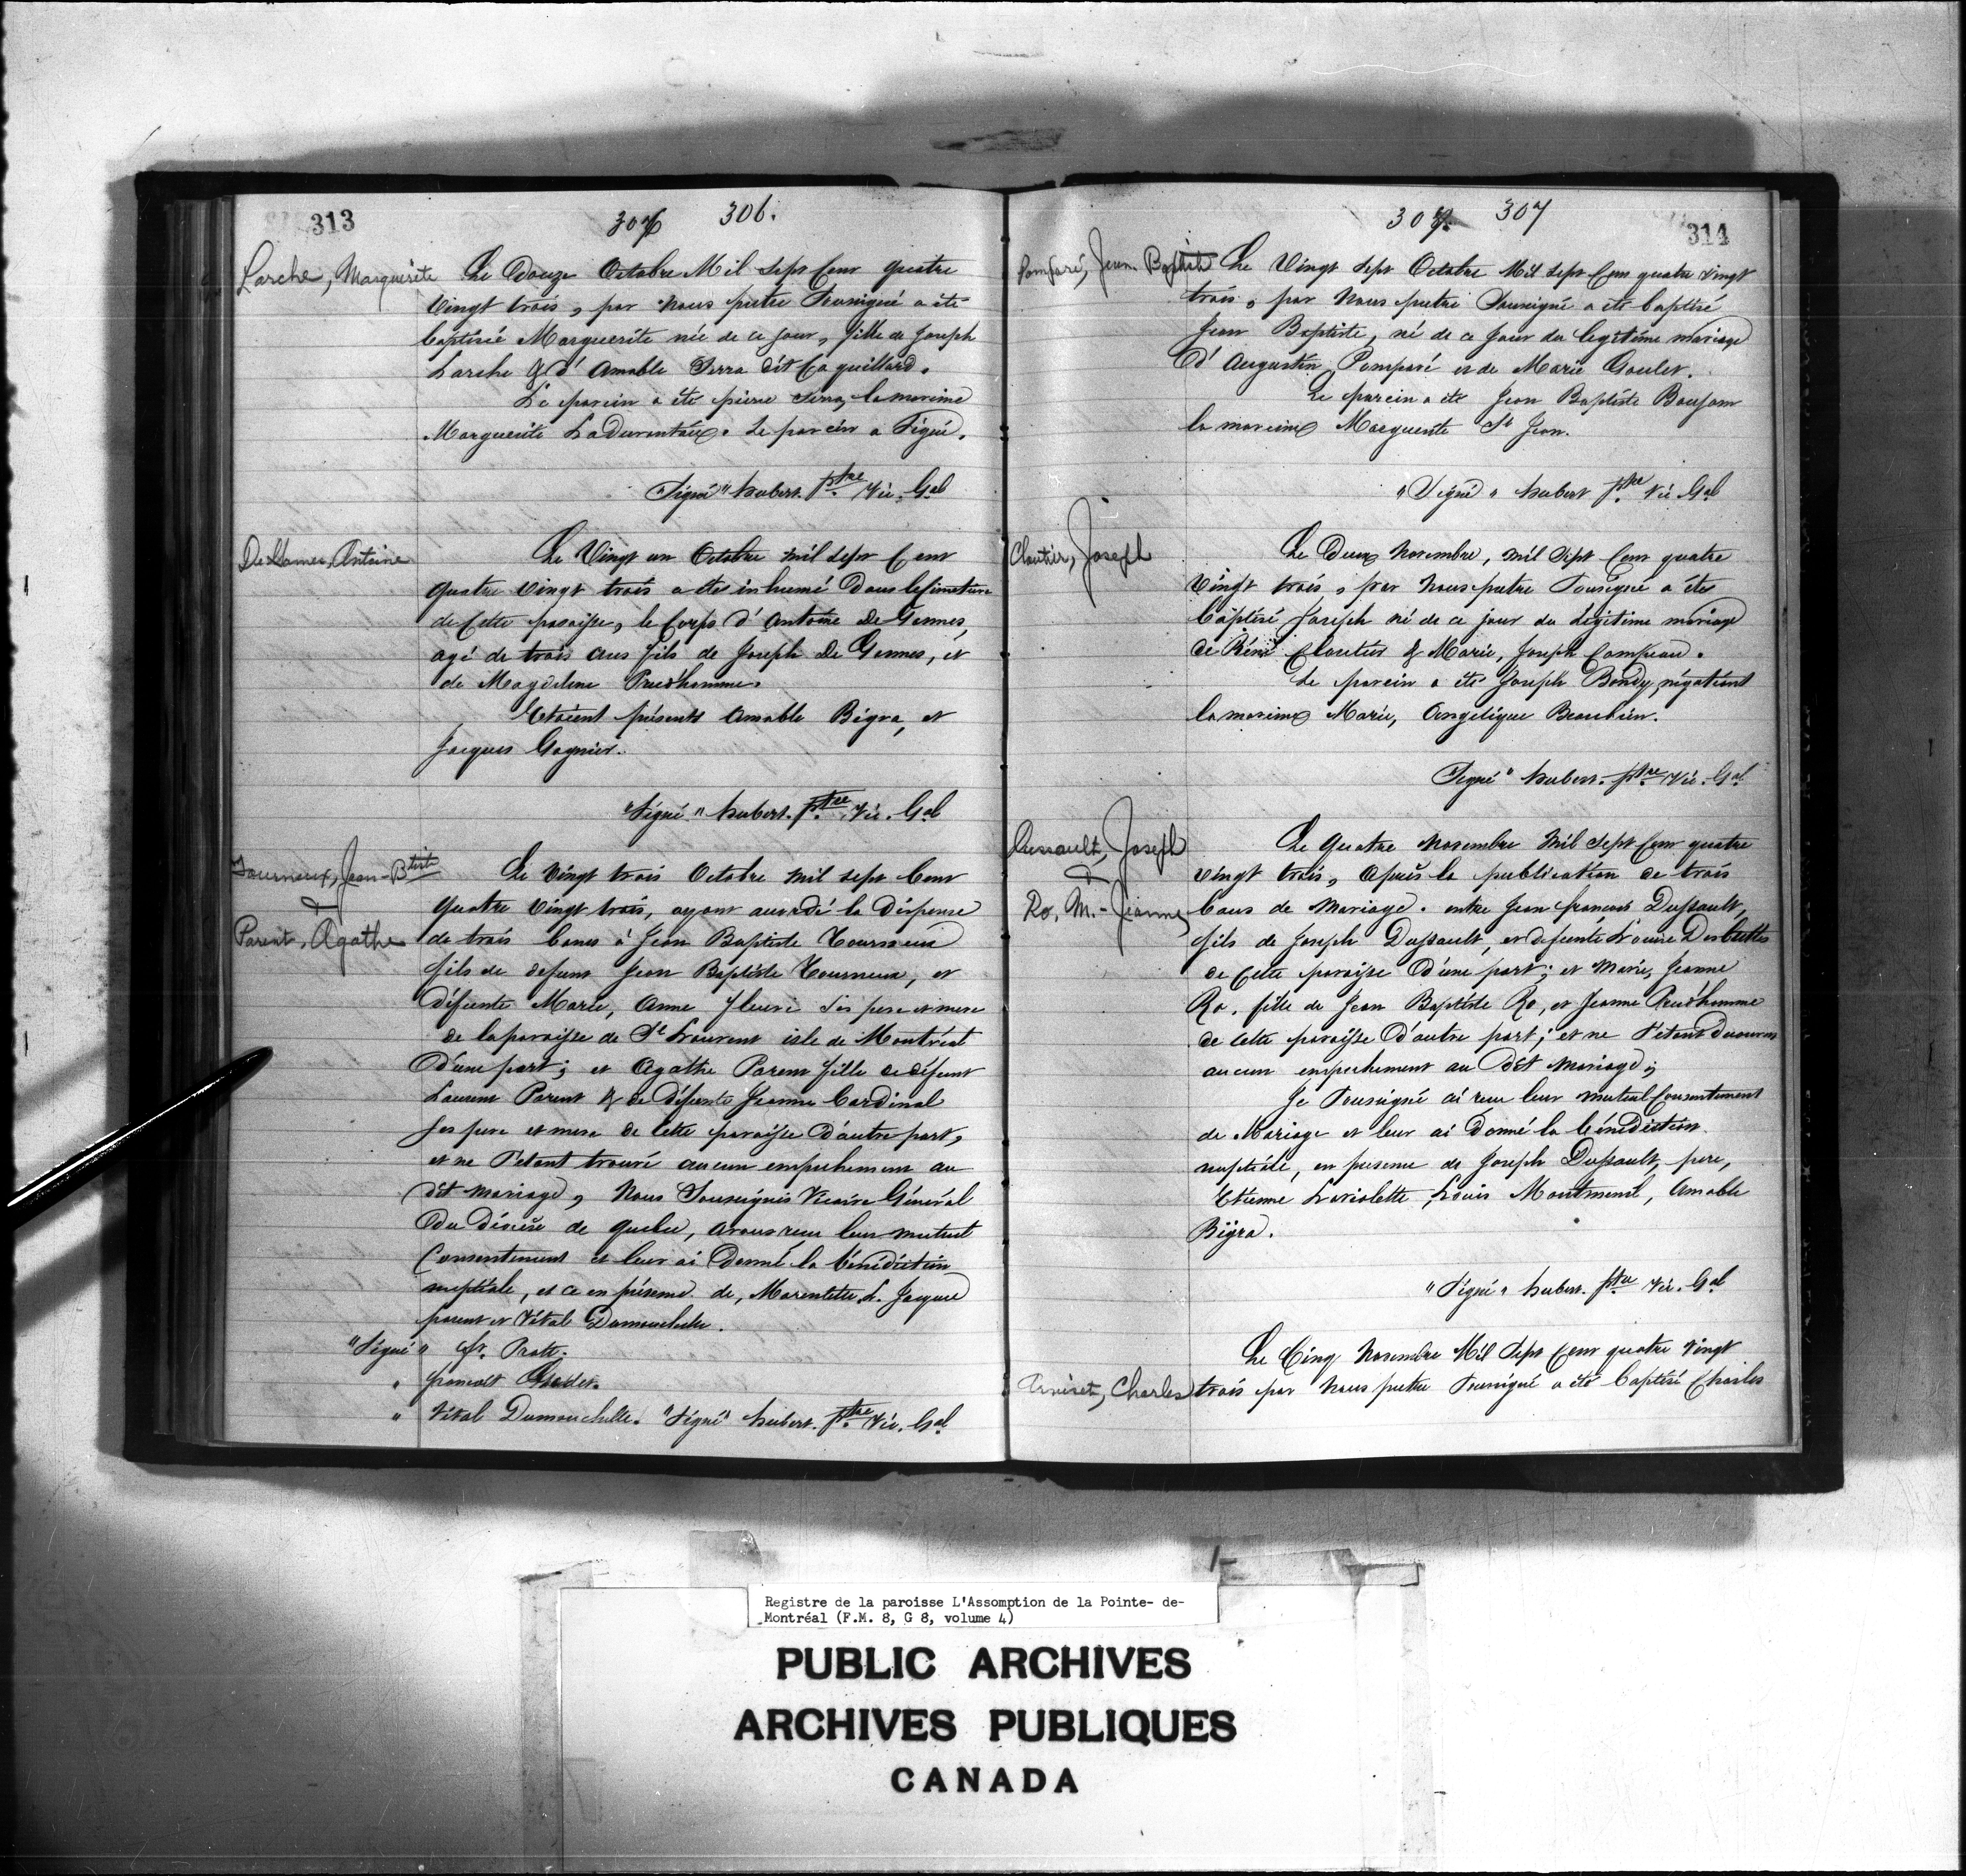 313
307 306.
Larche, Marguerite
Le Douze Octobre Mil Sept Cent quatre
Vingt trois, par nous prêtre Soussigné a été
baptisée Marguerite née de ce jour, fille de Joseph
Larche & d'Amable Serra dit Coquillard.
Le parein a été pierre Serra, la mareine
Marguerite Ladurantaux. Le parein a Signé.
"Signé" hubert. ptre Vic. Gal
DeHames, Antoine
Le Vingt un Octobre mil Sept Cent
quatre Vingt trois a été inhumé Dans le simetiere
de Cette paroisse, le Corps d'Antoine De Gennes,
agé de trois ans fils de Joseph De Gennes, et
de Magdelene Prudhomme.
Etoient présents Amable Bigra, et
Jacques Gagnier.
"Signé" hubert. ptre Vic. Gal
Tourneux, Jean-Btiste
&
Parent, Agathe
Le Vingt trois Octobre mil sept Cent
quatre Vingt trois, ayant accordé la Dispense
de trois bancs à Jean Baptiste Tourneux
fils de defunt Jean Baptiste Tourneux, et
défunte Marie, Anne fleuri Ses pere et mere
de la paroisse de St Laurent isle de Montréal
D'une part; et Agathe Parent fille de défunt
Laurent Parent & de défunte Jeanne Cardinal
Ses pere et mere de Cette paroisse D'autre part,
et ne S'étant trouvé aucun empechement au
dit mariage, Nous Soussignés Vicaire Général
Du diocèse de quebec, avons reçu leur mutuel
Consentement et leur ai Donné la bénédiction
nuptiale, et ce en présence de, Marentette, L. Jacque
parent et Vital Dumouchelle.
"Signé" fr. Pratt.
" francois Gode.
" Vital Dumouchelle. "Signé" hubert. ptre Vic. Gal
307. 307
314
Pomparé, Jean Baptiste
Le Vingt Sept Octobre Mil Sept Cent quatre vingt
trois, par Nous prêtre Soussigné a été baptisé
Jean Baptiste, né de ce jour du legitime mariage
D'Augustin Pomparé et de Marie Goulet.
Le parein a été Jean Baptiste Baujam
la mareine Marguerite St Jean.
"Signé" hubert ptre Vic Gal
Cloutier, Joseph
Le Deux Novembre, mil Sept Cent quatre
Vingt trois, par Nous prêtre Soussigné a été
baptisé Joseph né de ce jour du Légitime mariage
de Réné Cloutier & Marie, Joseph Campeau.
Le parein a été Joseph Bondy négotiant
la mareine Marie, Angélique Beaubien.
Signé" hubert. ptre Vic. Gal
Dussault, Joseph
&
Ro, M.-Jeanne
Le quatre Novembre Mil Sept Cent quatre
vingt trois, après la publication de trois
bans de Mariage. entre Jean francois Dussault,
fils de Joseph Dussault, et defunte Louise Desbuttes
de Cette paroisse D'une part; et Marie, Jeanne
Ro. fille de Jean Baptiste Ro, et Jeanne Prudhomme
de cette paroisse D'autre part; et ne S'étant Decouvert
aucun empechement au Dit Mariage;
Je Soussigné ai reçu leur mutuel Consentement
de Mariage et leur ai Donné la bénédiction
nuptiale, en presence de Joseph Dussault, pere,
Etienne Laviolette, Louis Montmenil, Amable
Bigra.
"Signé" hubert. ptre Vic. Gal
Le Cinq Novembre Mil Sept Cent quatre Vingt
Charles trois par Nous prêtre Soussigné a été baptisé Charles
Registre de la paroisse L'Assomption de la Pointe- de-
Montréal (F.M. 8, G 8, volume 4)
PUBLIC ARCHIVES
ARCHIVES PUBLIQUES
CANADA